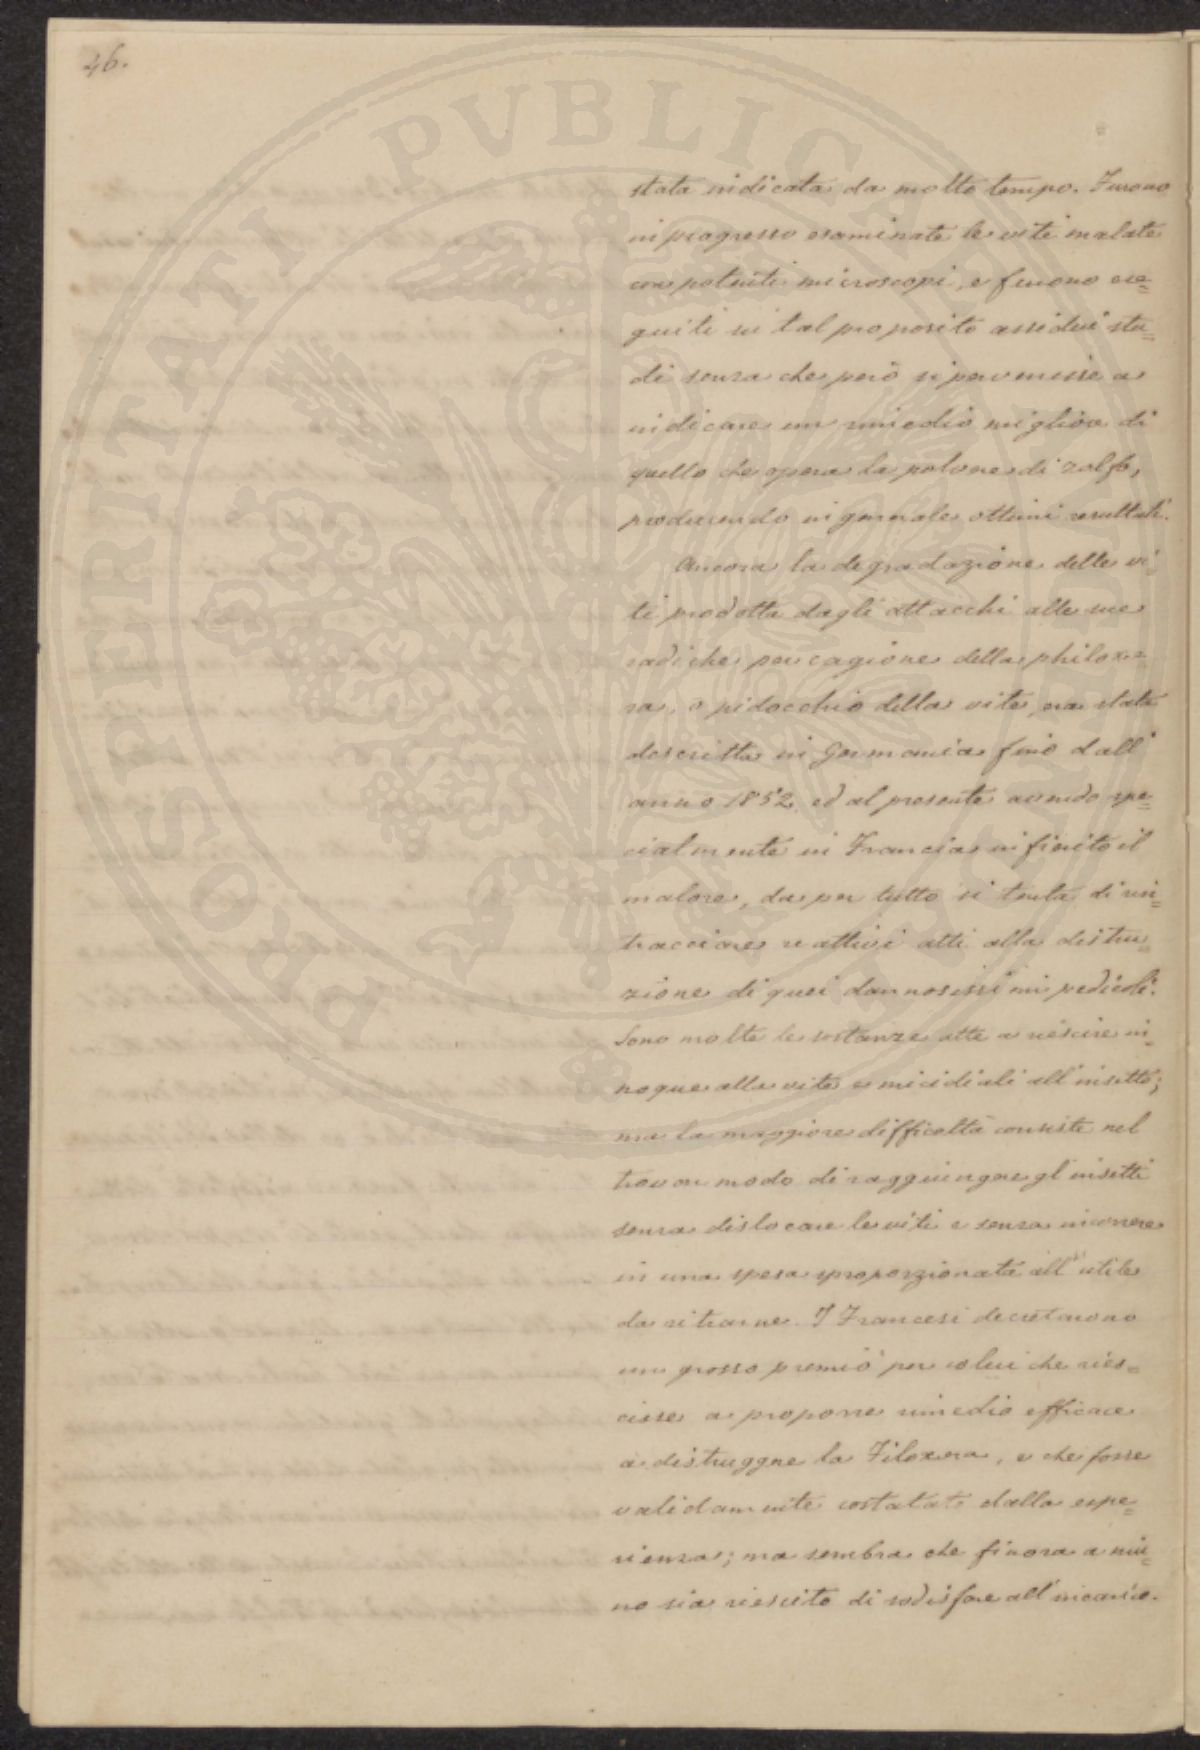 46.
PROSPERITATI PVBLICAE AVGENDAE
stata indicata da molto tempo. Furono
in progresso esaminate le viti malate
con potenti microscopi, e furono ese=
guiti in tal proposito assidui stu=
di senza che però si pervenisse a
indicare un rimedio migliore di
quello che opera la polvere di zolfo,
producendo in generale ottimi resultati.
Ancora la degradazione delle vi=
ti prodotta dagli attacchi alle sue
radiche per cagione della philoxe=
ra, o pidocchio della vite, era stata
descritta in Germania fino dall'
anno 1852, ed al presente avendo spe=
cialmente in Francia infierito il
malore, da per tutto si tenta di rin=
tracciare reattivi atti alla distru=
zione di quei dannosissimi pedicoli.
Sono molte le sostanze atte a riescire in=
noque alla vite e micidiali all'insetto;
ma la maggiore difficoltà consiste nel
trovar modo di raggiungere gl'insetti
senza dislocare le viti e senza incorrere
in una spesa sproporzionata all'utile
da ritrarne. I Francesi decretarono
un grosso premio per colui che ries=
cisse a proporre rimedio efficace
a distruggere la Filoxera, e che fosse
validamente costatato dalla espe=
rienza; ma sembra che finora a niu=
no sia riescito di sodisfare all'incarico.